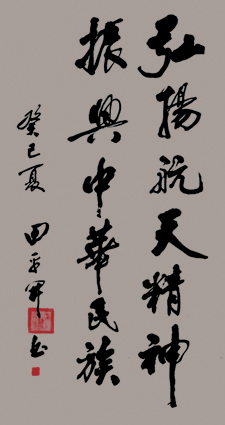 弘揚航天精神
振興中華民族
癸巳夏
田平軍书